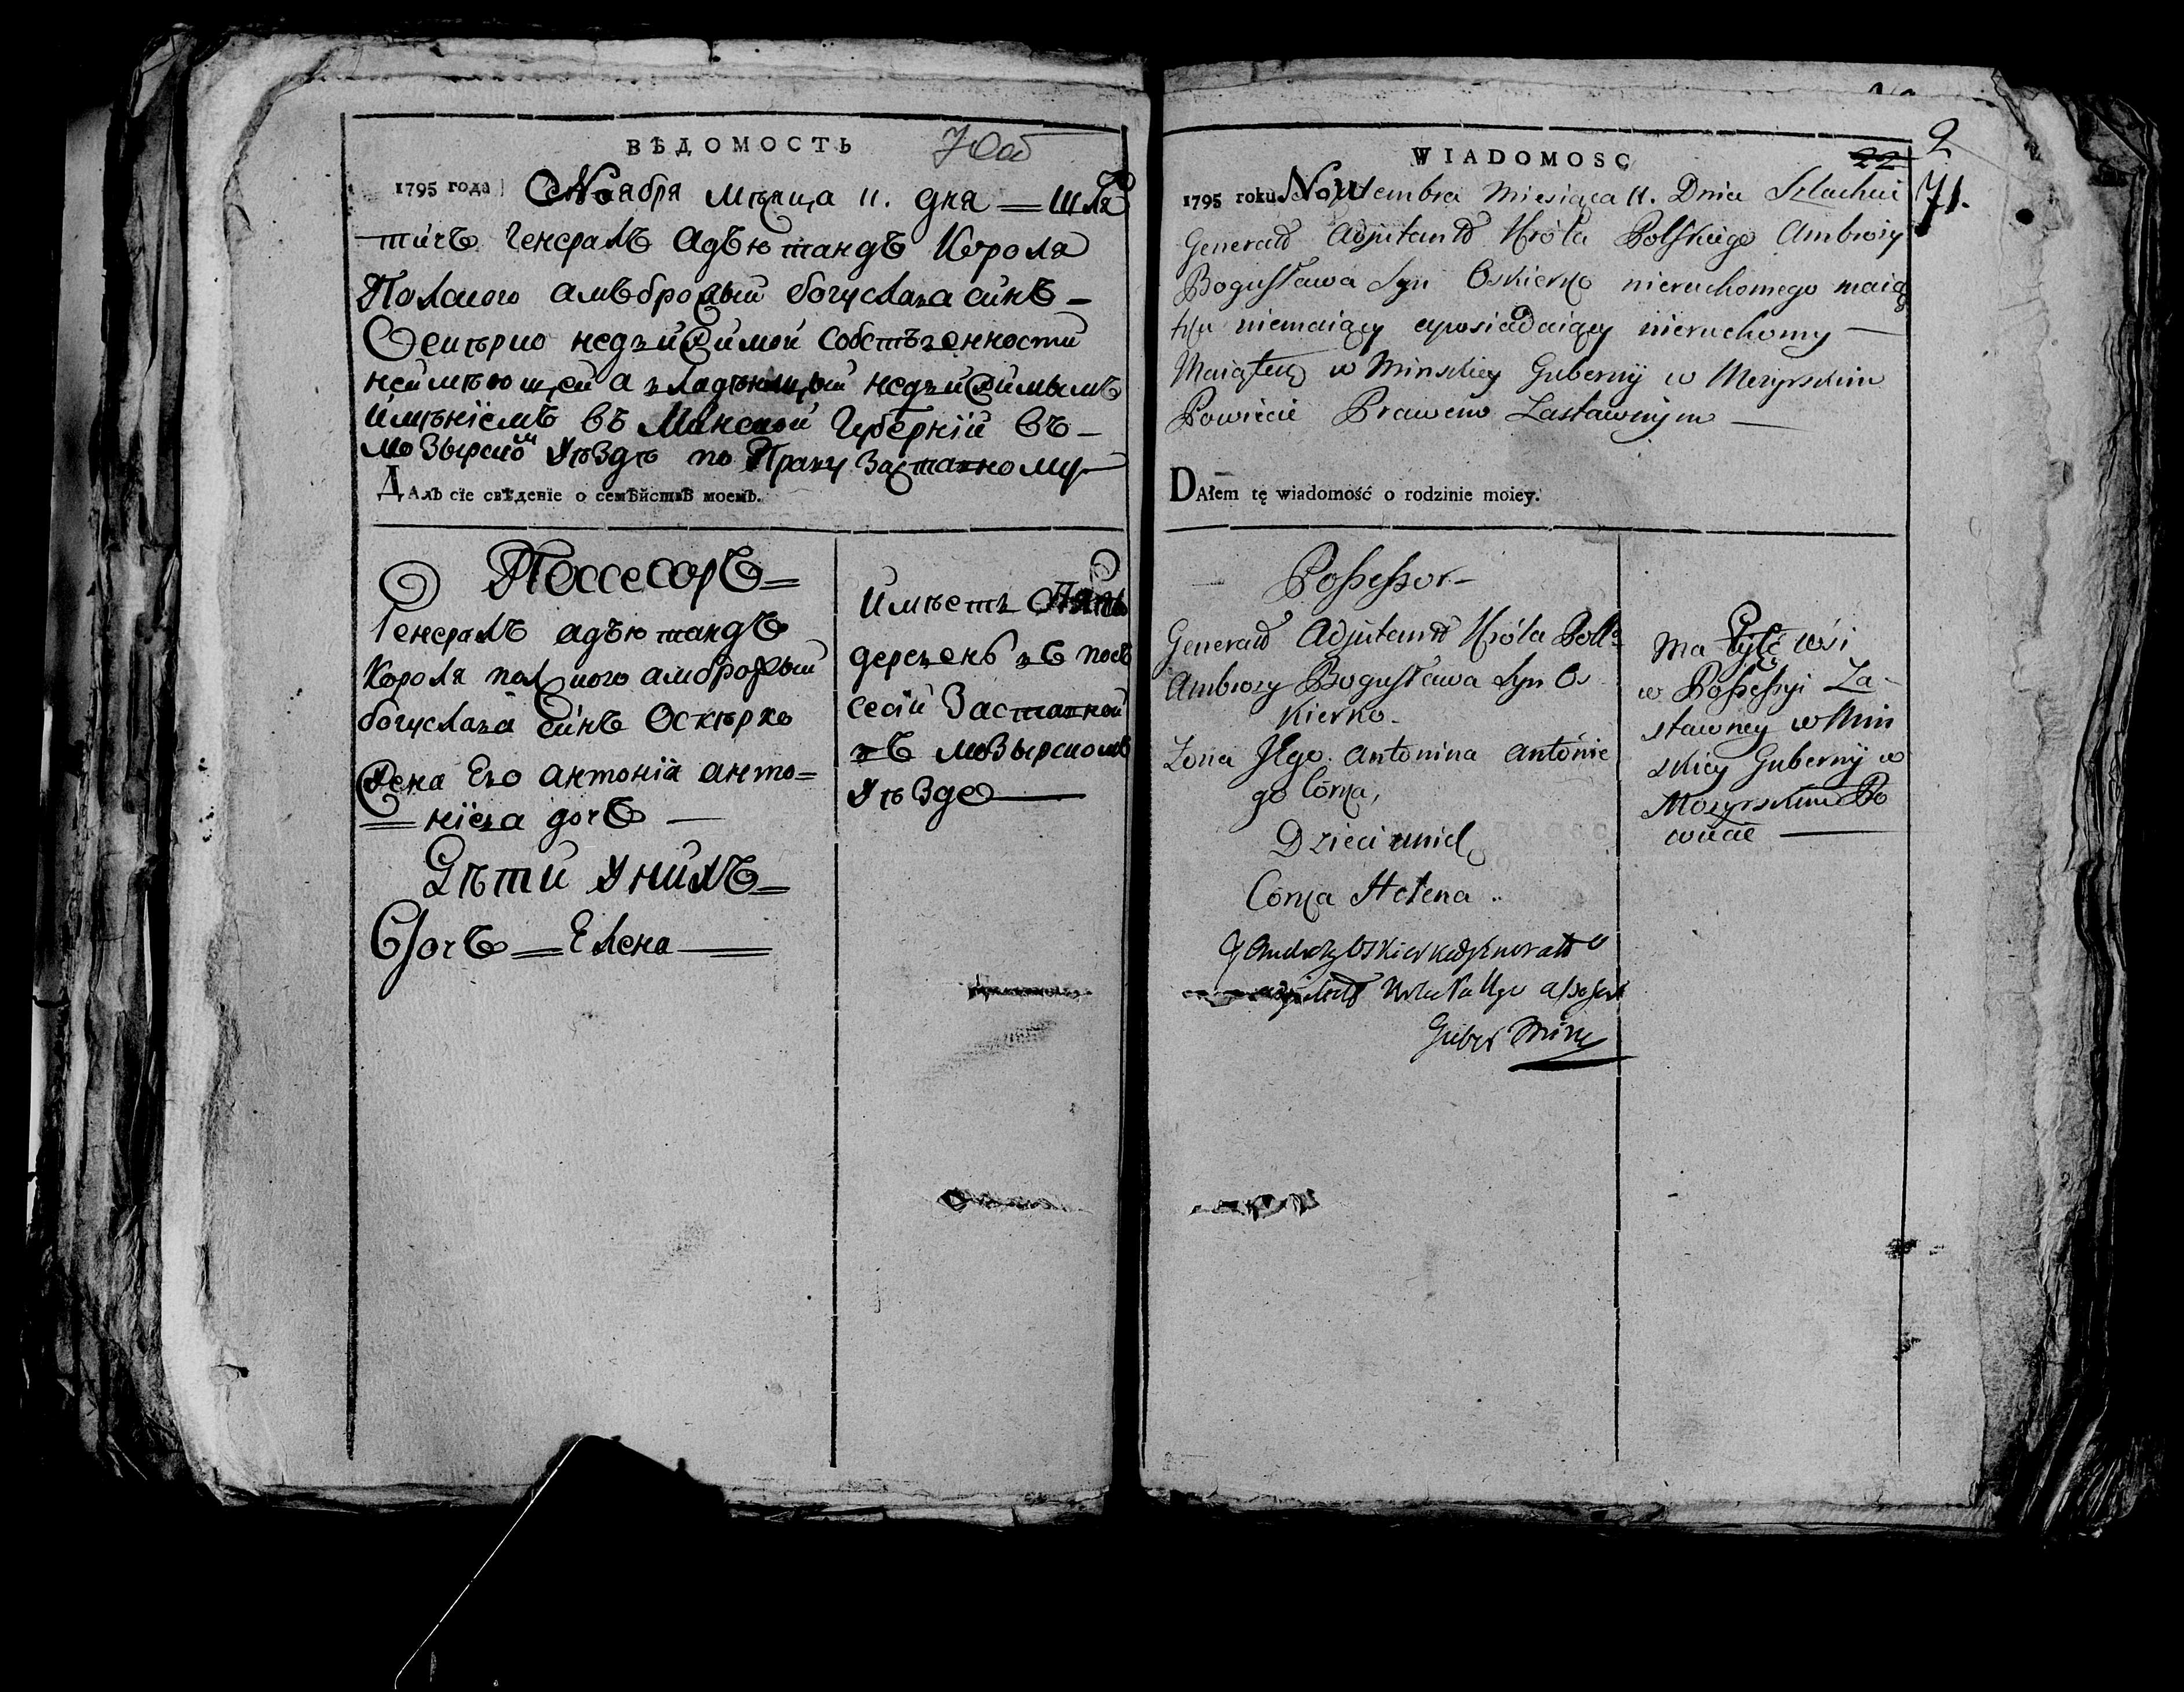 ВѢДОМОСТЬ
70об
1795 года Ноября мѣсяца 11. дня — шля
тичъ Генералъ адъютандъ Короля
Полского амъброзый богуслава синъ —
Оскѣрко недвижимой собствѣнности
неимѣющей а владѣющый недвижимымъ
имѣніемъ въ Минской Губерніи въ —
мозырском уѣздѣ по Праву заставному
Далъ сіе свѣденіе о семѣйствѣ моемъ.
Поссесоръ
Генералъ адъютандъ
Короля полского амброзый
богуслава синъ Оскѣрко
Жена Его антонія анто=
=нїева дочъ —
Дѣти у нихъ
Дочъ — Елена
имѣетъ Пять
деревень въ пось
сесіи заставной
въ мозырскомъ
уѣзде
WIADOMOSC
22
2
71.
1795 roku Nowembra Miesiąca 11. Dnia Szlachci
Generald Adjutantd Króla Polskiego Ambroży
Bogusława Syn Oskierko nieruchomego maią
tku niemaiący a posiadaiący nieruchomy —
Maiątek w Minskiey Gubernij w Mozyrskim
Powiecie Prawem Zastawnym —
DAłem tę wiadomość o rodzinie moiey.
Possessor
Generald Adjutantd Króla Polk°
Ambrozy Bogusława Syn Os
kierko
Zona Jego Antonina Antonie
go Córka,
Dzieci unich
Córka Helena
Ma Pięć wsi
w Possessyi Za-
stawney w Min
skiey Gubernij w
Mozyrskim Po
wiecie —
Oskierka
Guber Min